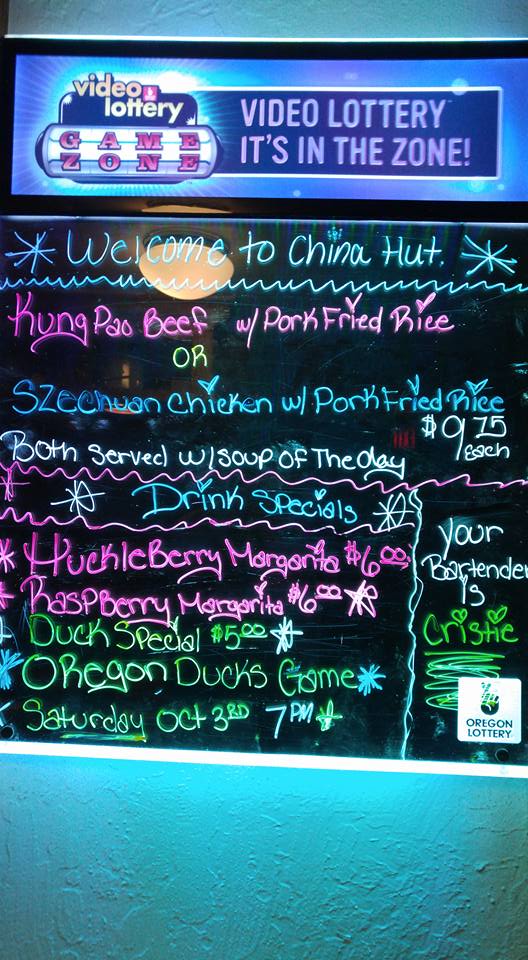 video lottery
GAME ZONE
VIDEO LOTTERY™
IT'S IN THE ZONE!
Welcome to China Hut.
Kung Pao Beef w/ Pork Fried Rice
OR
Szechuan Chicken w/ Pork Fried Rice
$9.75 each
Both Served w/ Soup of The day
Drink Specials
HuckleBerry Margarita $6.00
RaspBerry Margarita $6.00
Duck Special $5.00
Oregon Ducks Game
Saturday Oct 3RD 7PM
your
Bartender
is
Cristie
OREGON
LOTTERY